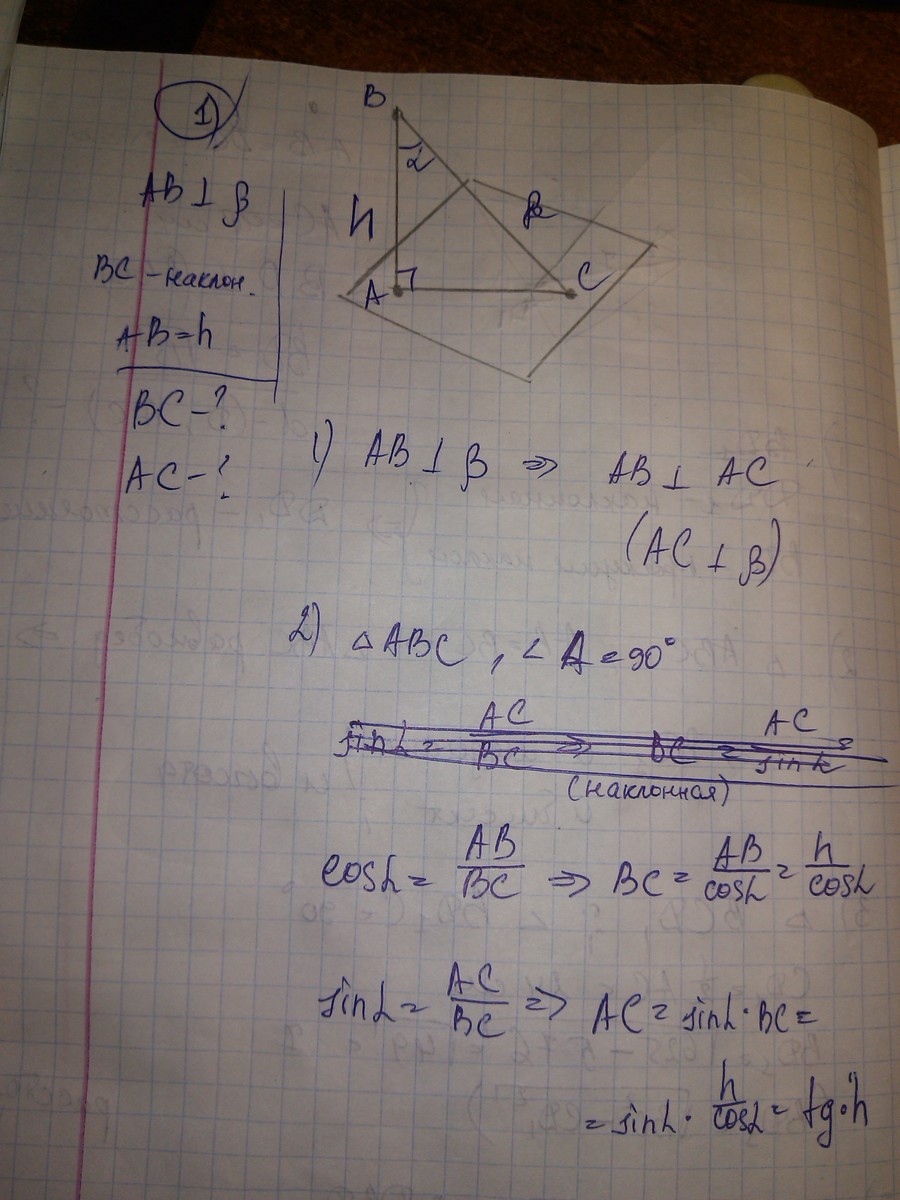 1)
AB ⊥ β
BC – наклон.
AB = h
BC - ?
AC - ?
B
α
h
β
A
C
1) AB ⊥ β ⇒ AB ⊥ AC
(AC ⊥ β)
2) △ABC, ∠A = 90°
sin α = AC/BC ⇒ BC = AC/sin α =
(наклонная)
cos α = AB/BC ⇒ BC = AB/cos α = h/cos α
sin α = AC/BC ⇒ AC = sin α · BC =
= sin α · h/cos α = tg · h